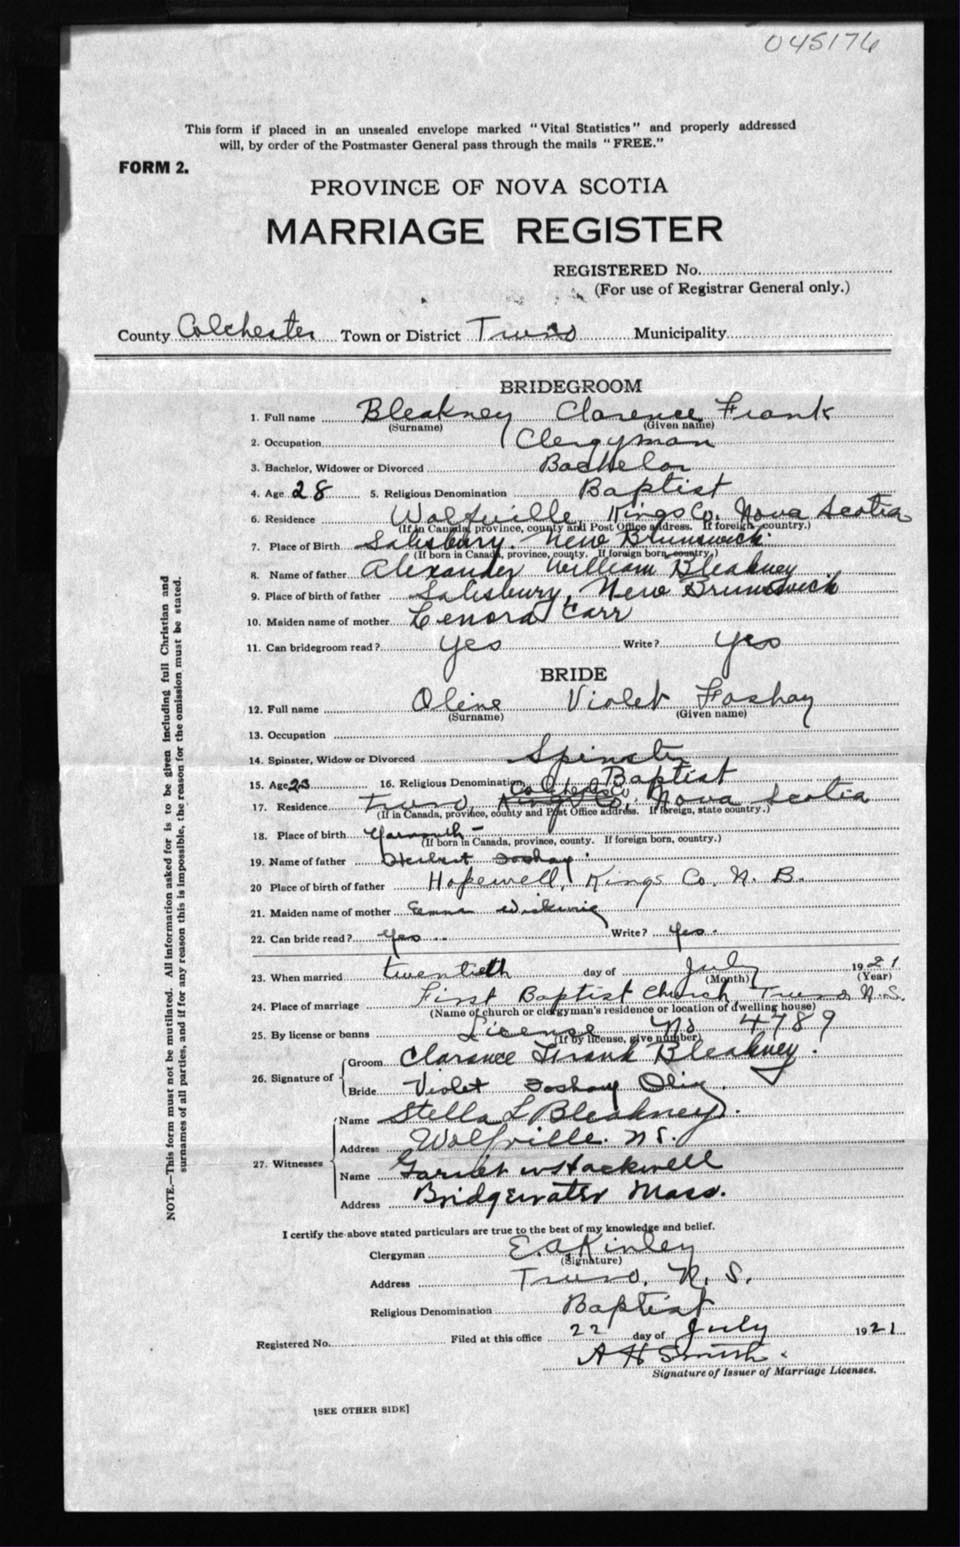 045176
This form if placed in an unsealed envelope marked "Vital Statistics" and properly addressed
will, by order of the Postmaster General pass through the mails "FREE."
FORM 2.
PROVINCE OF NOVA SCOTIA
MARRIAGE REGISTER
REGISTERED No.
(For use of Registrar General only.)
County Colchester Town or District Truro Municipality
BRIDEGROOM
1. Full name Bleakney Clarence Frank
(Surname) (Given name)
2. Occupation Clergyman
3. Bachelor, Widower or Divorced Bachelor
4. Age 28 5. Religious Denomination Baptist
6. Residence Wolfville Kings Co. Nova Scotia
(If in Canada, province, county and Post Office address. If foreign, country.)
7. Place of Birth Salisbury. New Brunswick.
(If born in Canada, province, county. If foreign born, country.)
8. Name of father Alexander William Bleakney
9. Place of birth of father Salisbury, New Brunswick
10. Maiden name of mother Lenora Carr
11. Can bridegroom read? yes Write? yes
BRIDE
12. Full name Oline Violet Foshay
(Surname) (Given name)
13. Occupation
14. Spinster, Widow or Divorced Spinster
15. Age 23 16. Religious Denomination Baptist
Colchester Co
17. Residence Truro, Kings Co, Nova Scotia
(If in Canada, province, county and Post Office address. If foreign, state country.)
18. Place of birth Yarmouth -
(If born in Canada, province, county. If foreign born, country.)
19. Name of father Herbert Foshay
20 Place of birth of father Hopewell, Kings Co. N. B.
21. Maiden name of mother Emma
22. Can bride read? Yes Write? Yes.
23. When married twentieth day of July 1921
(Month) (Year)
24. Place of marriage First Baptist Church, Truro N.S.
(Name of church or clergyman's residence or location of dwelling house)
25. By license or banns License No 4789
(If by license, give number)
26. Signature of
Groom Clarence Frank Bleakney.
Bride Violet Foshay
27. Witnesses
Name Stella L Bleakney.
Address Wolfville. N.S.
Name
Address Bridgewater Mass.
I certify the above stated particulars are true to the best of my knowledge and belief.
Clergyman E. A Kinley
(Signature)
Address Truro, N. S.
Religious Denomination Baptist
Registered No. Filed at this office 22 day of July 1921
A H Smith.
Signature of Issuer of Marriage Licenses.
[SEE OTHER SIDE]
NOTE.—This form must not be mutilated. All information asked for is to be given including full Christian and
surnames of all parties, and if for any reason this is impossible, the reason for the omission must be stated.